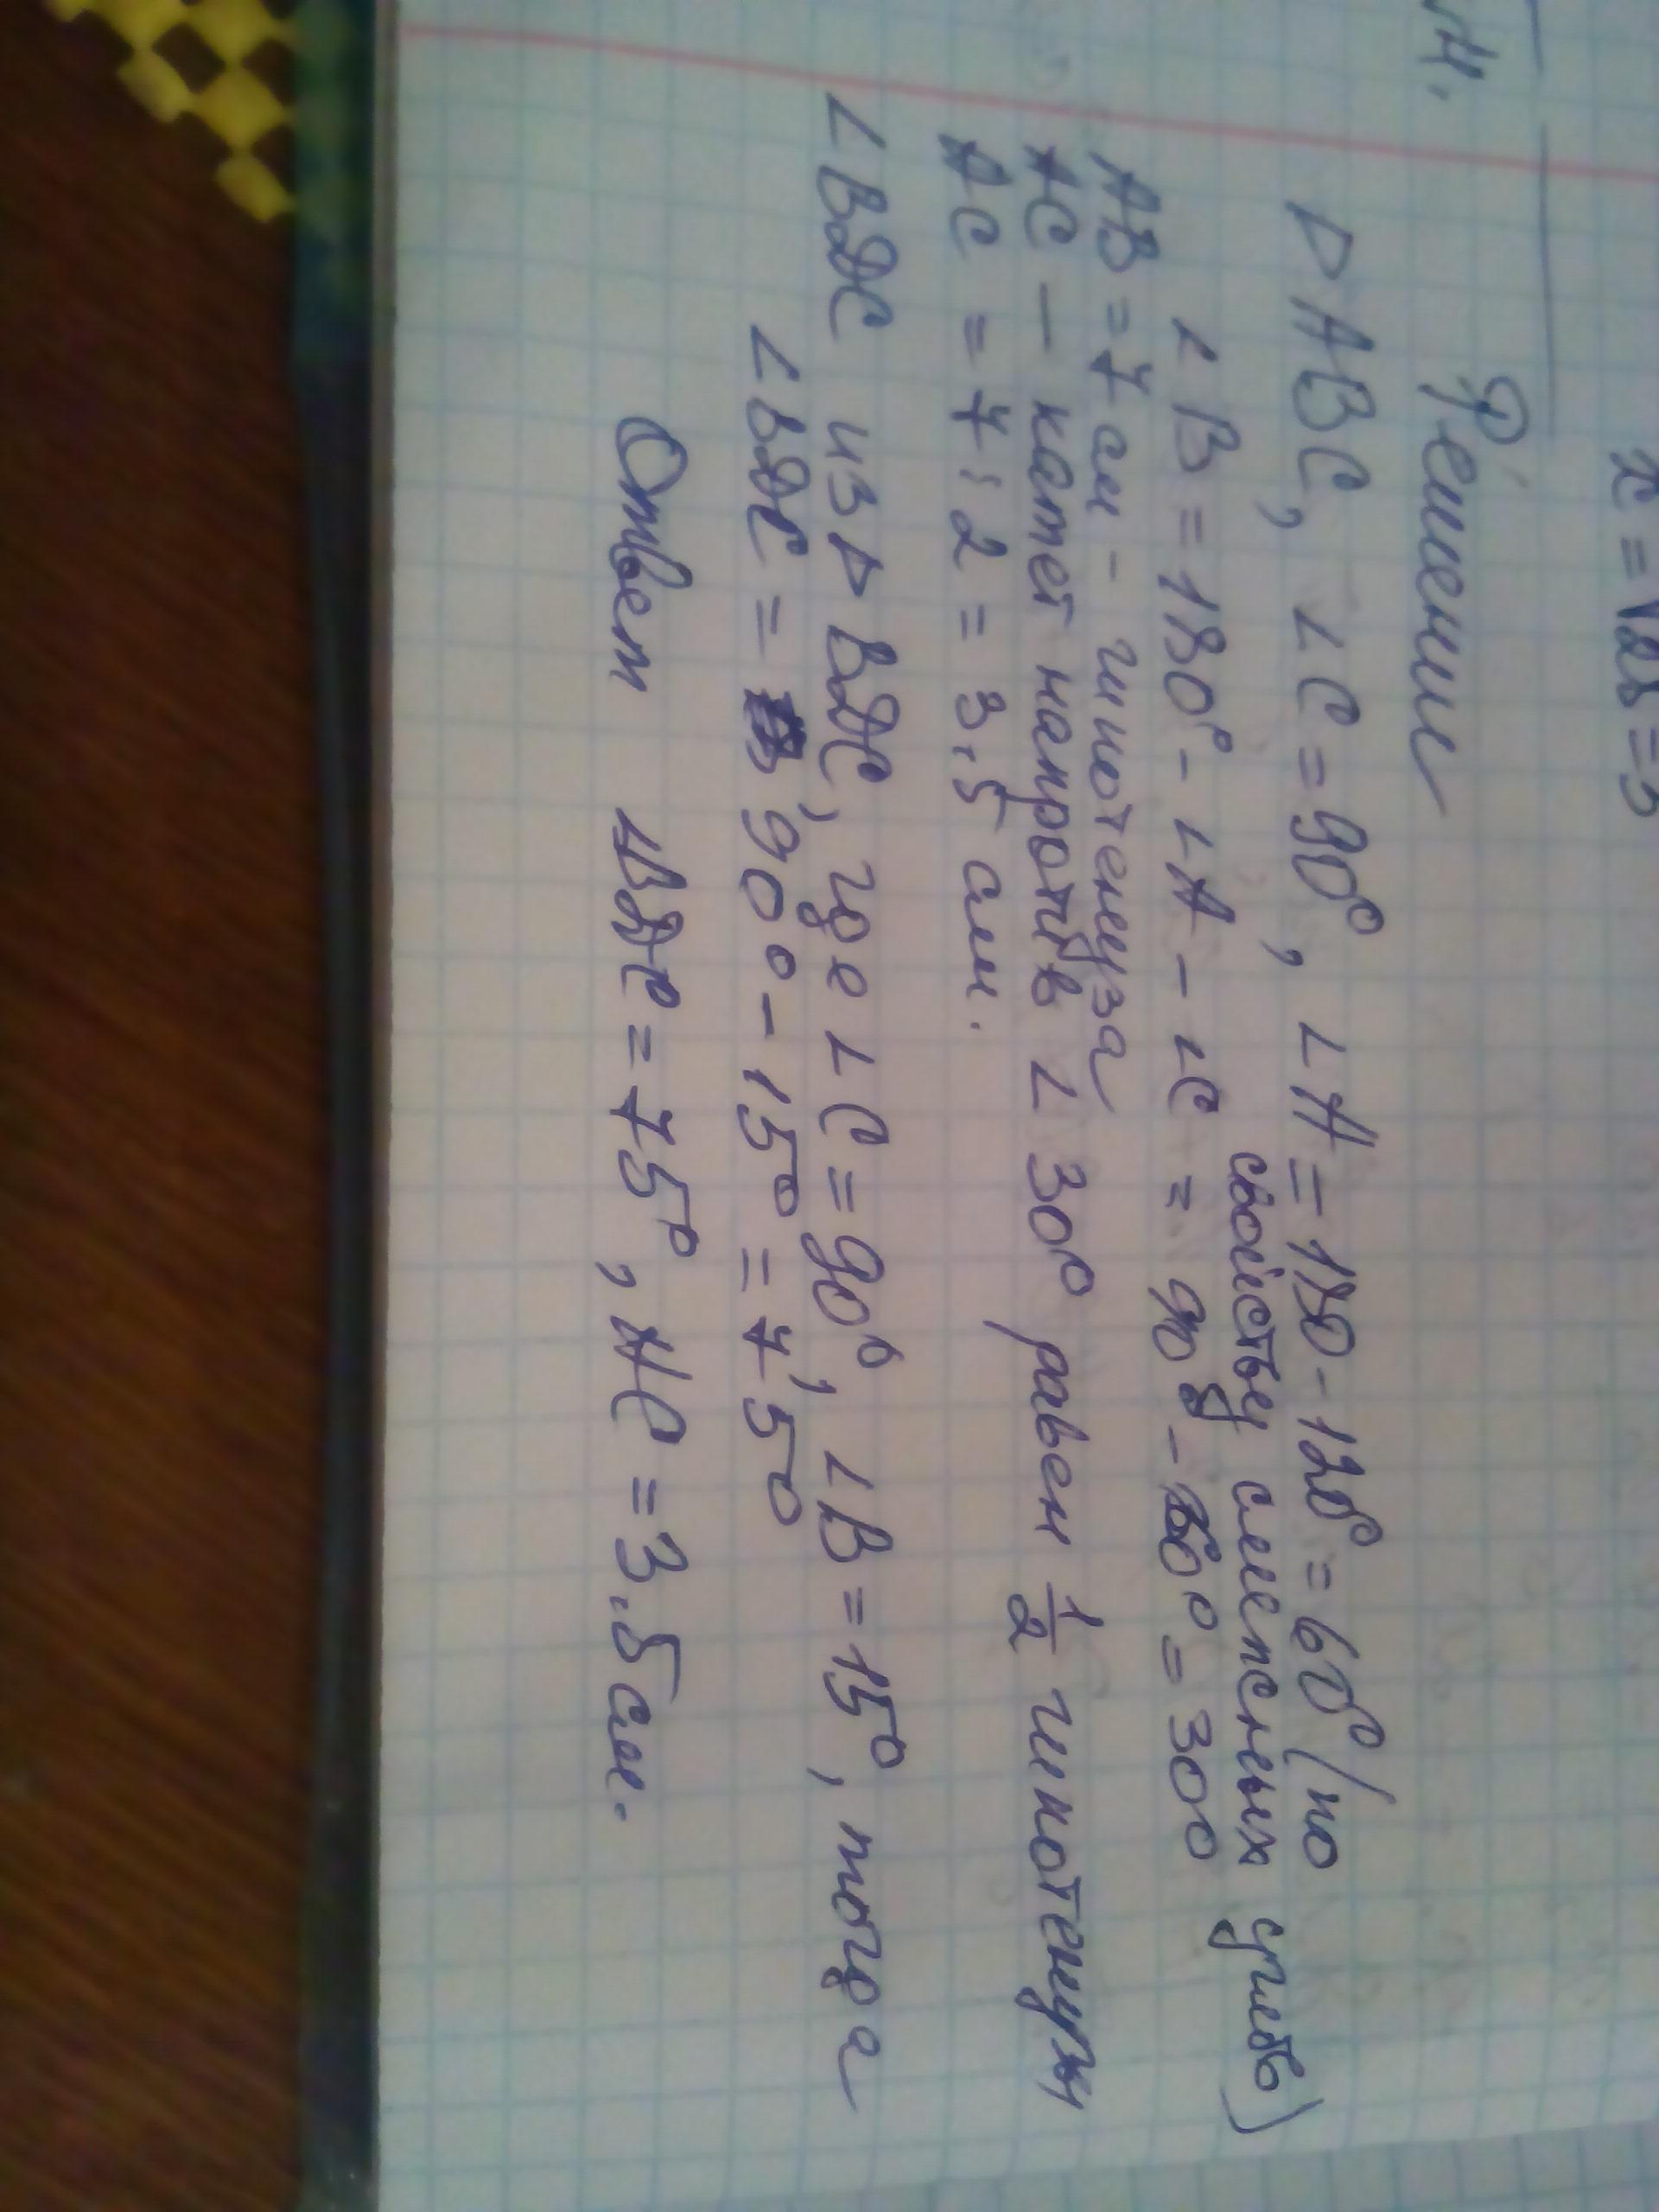 x = √25 = 5
Решение
△ABC, ∠C = 90°, ∠A = 180 - 120° = 60° (по
свойству смежных углов)
∠B = 180° - ∠A - ∠C = 90° - 60° = 30°
AB = 7 см - гипотенуза
AC - катет напротив ∠ 30° равен 1/2 гипотенузы
AC = 7 : 2 = 3,5 см.
∠BDC из △ BDC, где ∠C = 90°, ∠B = 15°, тогда
∠BDC = 90° - 15° = 75°
Ответ ∠BDC = 75°, AC = 3,5 см.